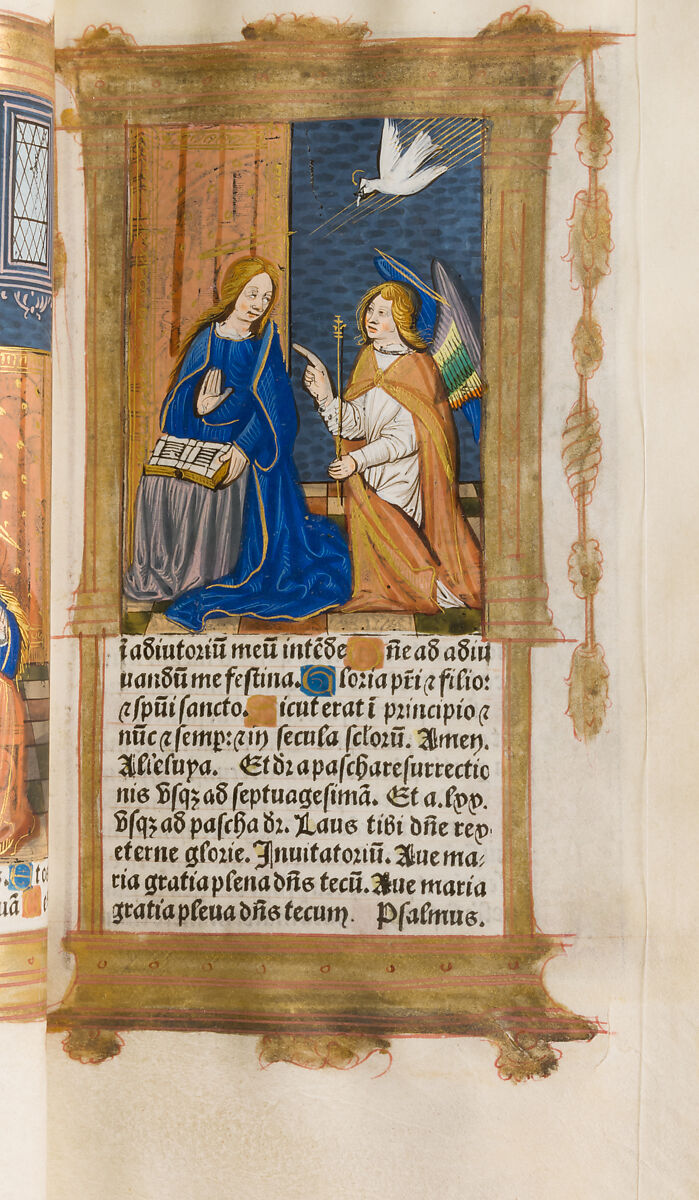 ĩ adiutoriũ meũ intẽde Dñe ad adiu
uandũ me festina. Gloria pr̃i ⁊ filio:
⁊ spũi sancto. Sicut erat ĩ principio ⁊
nũc ⁊ semp̲: ⁊ in secula sc̃loꝝ. Amen.
Alľeluya. Et dr̃ a pascha resurrectio
nis vsqꝫ ad septuagesimã. Et a .lxx.
vsqꝫ ad pascha dr̃. Laus tibi dñe rex
eterne glorie. Inuitatoriũ. Aue ma⸗
ria gratia plena dñs tecũ. Aue maria
gratia pleua dñs tecum. Psalmus.